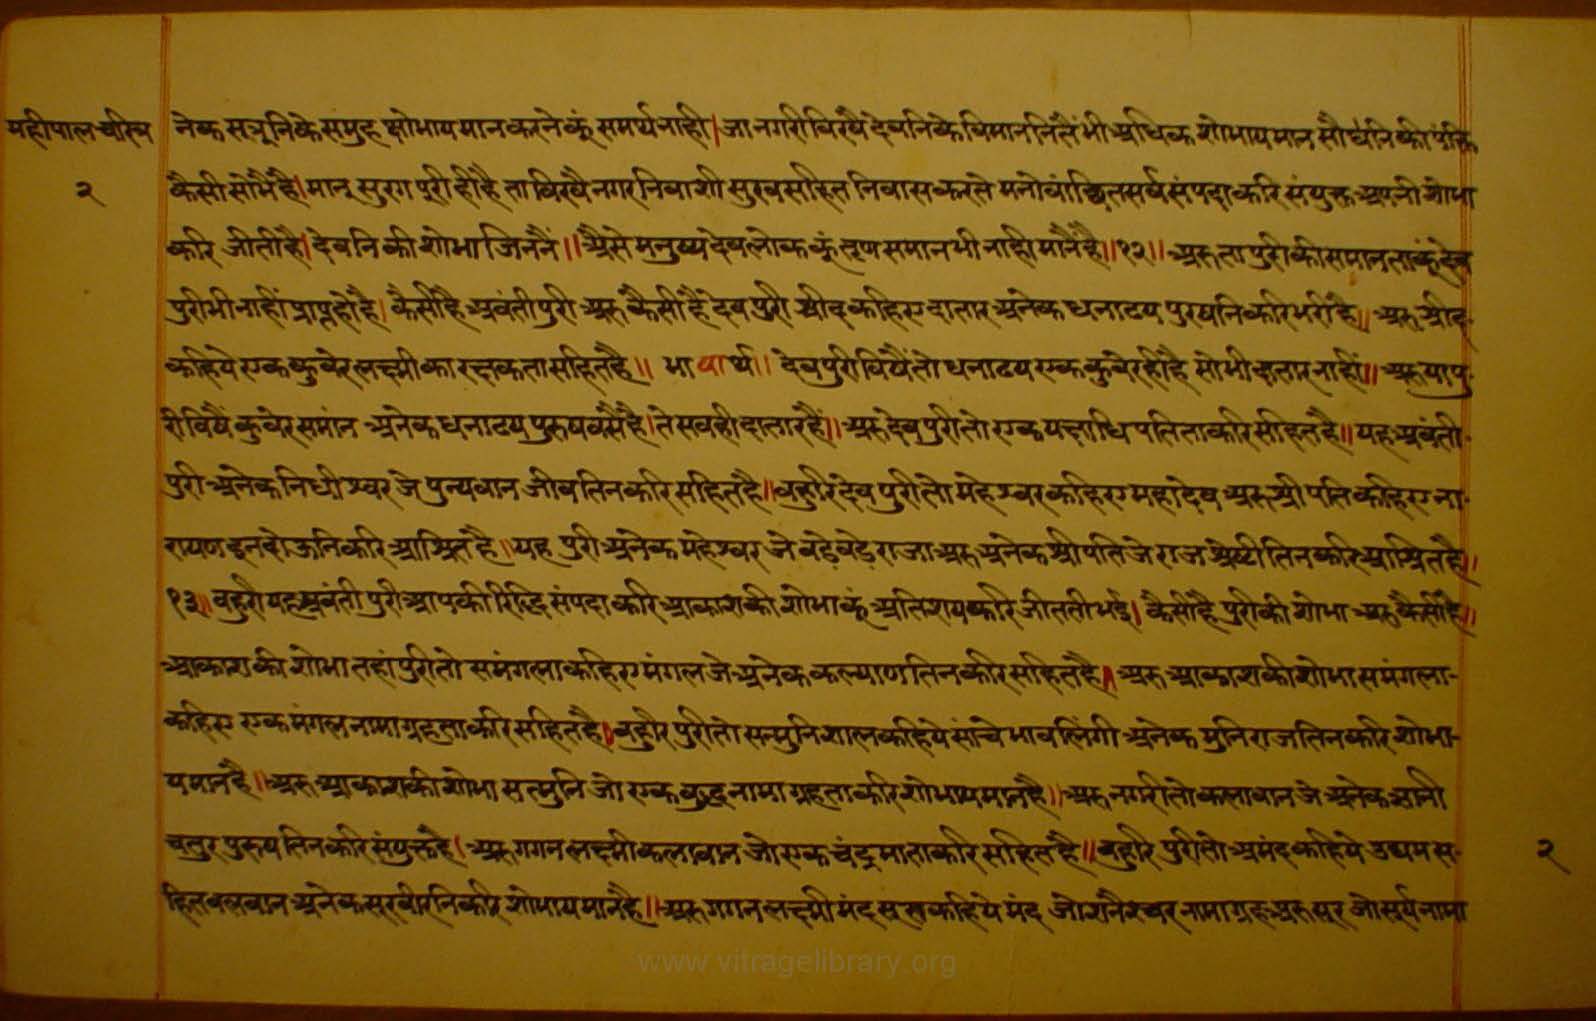 महीपाल चरित्र
२
नेक सत्रूनिके समुह क्षोभायमान करनेकूं समर्थ नाही। जा नगरी विरवै देवनिके विमाननितैं भी अधिक शोभायमान सौधनि की पंक्ति
कैसी सोभै है। मानू सुरग पूरी ही है ता विरवै नगर निवाशी सुरव सहित निवास करते मनोवांछित सर्व संपदा करि संयुक्त अपनी शोभा
करि जीती है। देवनि की शोभा जिननैं।। अैसे मनुष्य देवलोककूं तृण समान भी नाही मानै है।।१२।। अरु ता पुरी की समानताकूं देव
पुरी भी नाहीं प्राप्त हो है। कैसी है अवंती पुरी अरु कैसी है देव पुरी श्रीद कहिए दातार अनेक धनाढय पुरषनि करि भरी है।। अरु श्रीद
कहिये एक कुवेर लक्ष्मी का रक्षक ता सहित है।। भावार्थ।। देव पुरी विषैं तो धनाढय एक कुवेर ही है सो भी दातार नाहीं।। अरु या पु-
री विषैं कुवेर समांन अनेक धनाढय पुरुष वसै है। ते सवही दातार हैं।। अरु देव पुरी तो एक यक्षाधिपति ता करि सहित है।। यह अवंती-
पुरी अनेक निधीश्वर जे पुन्यवान जीव तिन करि सहित है।। वहुरि देव पुरी तो महेश्वर कहिए महादेव अरु श्री पति कहिए ना-
रायण इन दोऊनि करि आश्रित है।। यह पुरी अनेक महेश्वर जे वडे वडे राजा अरु अनेक श्रीपति जे राज श्रेष्टी तिन करि आश्रित है।।
१३।। वहुरौ यह अवंती पुरी आपकी रिद्धि संपदा करि आकाश की शोभा कूं अतिशय करि जीतती भई। कैसी है पुरी की शोभा अरु कैसी है।।
आकाश की शोभा तहां पुरी तो समंगला कहिए मंगल जे अनेक कल्याण तिन करि सहित है।। अरु आकाश की शोभा समंगला-
कहिए एक मंगल नामा ग्रह ता करि सहित है। वहुरि पुरी तो सन्मुनि शाल कहिये सांचे भावलिंगी अनेक मुनिराज तिन करि शोभा-
यमान है।। अरु आकाश की शोभा सन्मुनि जो एक वुद्ध नामा ग्रह ता करि शोभायमान है।। अरु नगरी तो कलावान जे अनेक ज्ञानी
चतुर पुरुष तिन करि संयुक्त है। अरु गगन लक्ष्मी कलावान जो एक चंद्रमा ता करि सहित है।। वहुरि पुरी तो अमंद कहिये उद्यम स-
हित वलवान अनेक सूरवीरनि करि शोभायमान है।। अरु गगन लक्ष्मी मंद कहिये मंद जो शनैश्चर नामा ग्रह अरु सूर जो सूर्य नामा
२
www.vitragelibrary.org